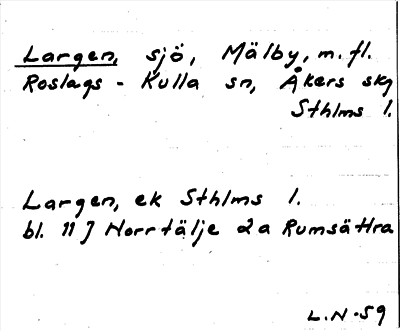 Largen, sjö, Mälby, m. fl.
Roslags - Kulla sn, Åkers skg
Sthlms l.
Largen, ek Sthlms l.
bl. 11 J Norrtälje 2a Rumsättra
L.N-59